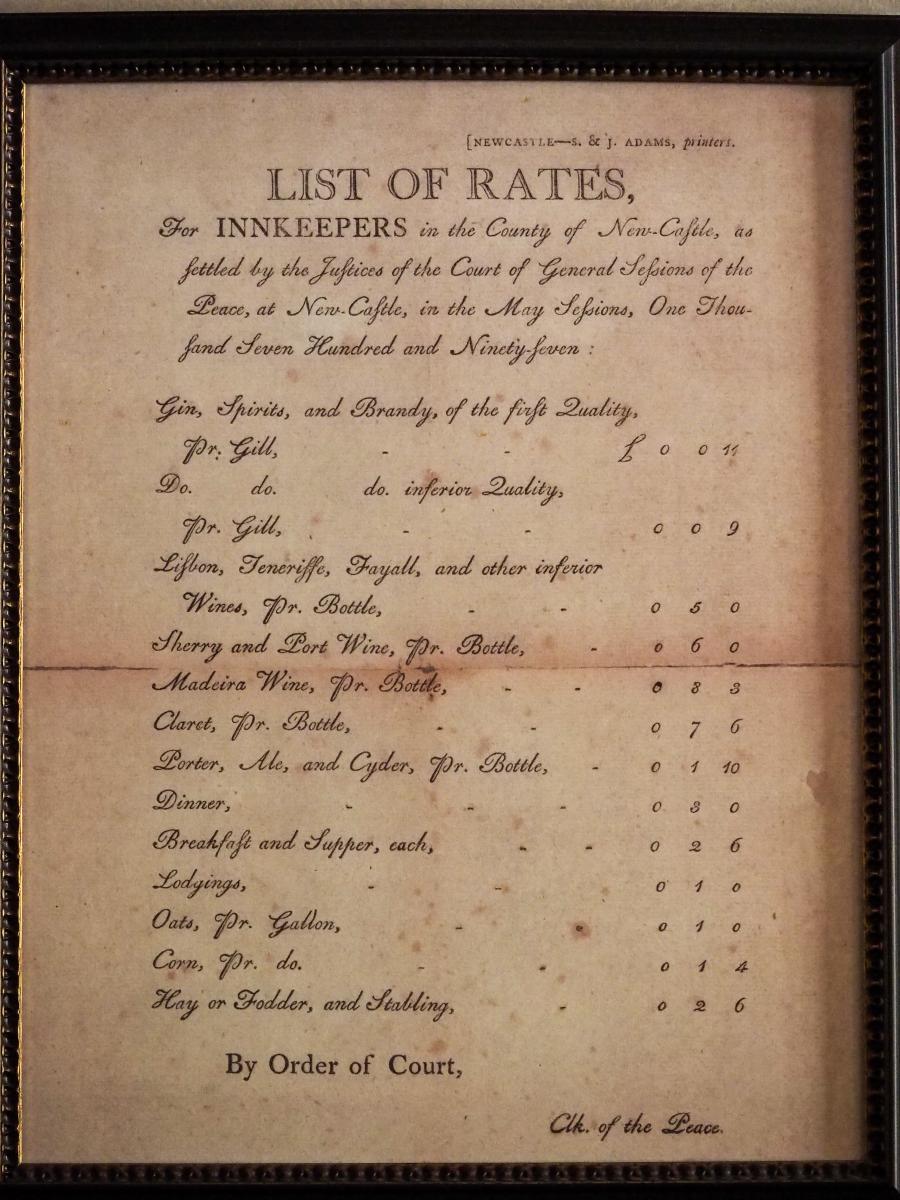 [NEWCASTLE—S. & J. ADAMS, printers.
LIST OF RATES,
For INNKEEPERS in the County of New-Caſtle, as
ſettled by the Juſtices of the Court of General Seſsions of the
Peace, at New-Caſtle, in the May Seſsions, One Thou-
ſand Seven Hundred and Ninety-ſeven :
Gin, Spirits, and Brandy, of the firſt Quality,
Pr. Gill, - - £ 0 0 11
Do. do. do. inferior Quality,
Pr. Gill, - - 0 0 9
Liſbon, Teneriffe, Fayall, and other inferior
Wines, Pr. Bottle, - - 0 5 0
Sherry and Port Wine, Pr. Bottle, - 0 6 0
Madeira Wine, Pr. Bottle, - - 0 8 3
Claret, Pr. Bottle, - - 0 7 6
Porter, Ale, and Cyder, Pr. Bottle, - 0 1 10
Dinner, - - - 0 3 0
Breakfaſt and Supper, each, - - 0 2 6
Lodgings, - - 0 1 0
Oats, Pr. Gallon, - - 0 1 0
Corn, Pr. do. - - 0 1 4
Hay or Fodder, and Stabling, - 0 2 6
By Order of Court,
Clk. of the Peace.